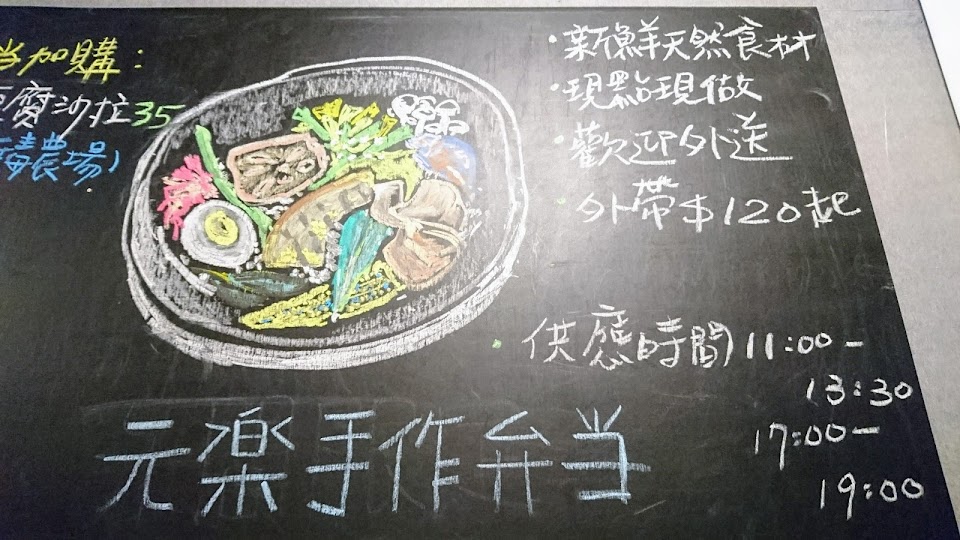 当加購：
豆腐沙拉35
農場)
·新鮮天然食材
·現點現做
·歡迎外送
·外帶$120起
·供應時間11:00-
13:30
17:00-
19:00
元楽手作弁当